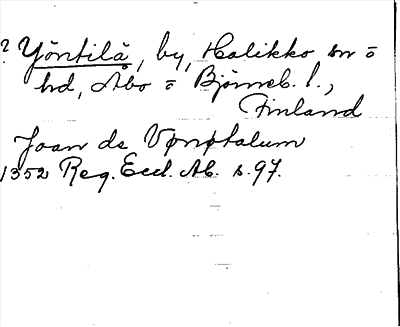 ? Yöntilä, by, Halikko sn o
hd, Åbo o Björneb. l.,
Finland
Joan de Vønøtalum
1352 Reg. Eccl. Ab. s. 97.